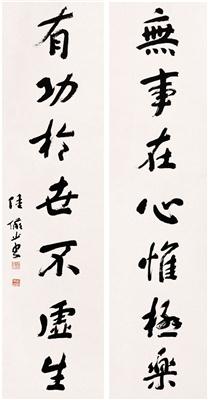 無事在心惟極樂
有功於世不虛生
陸儼少書